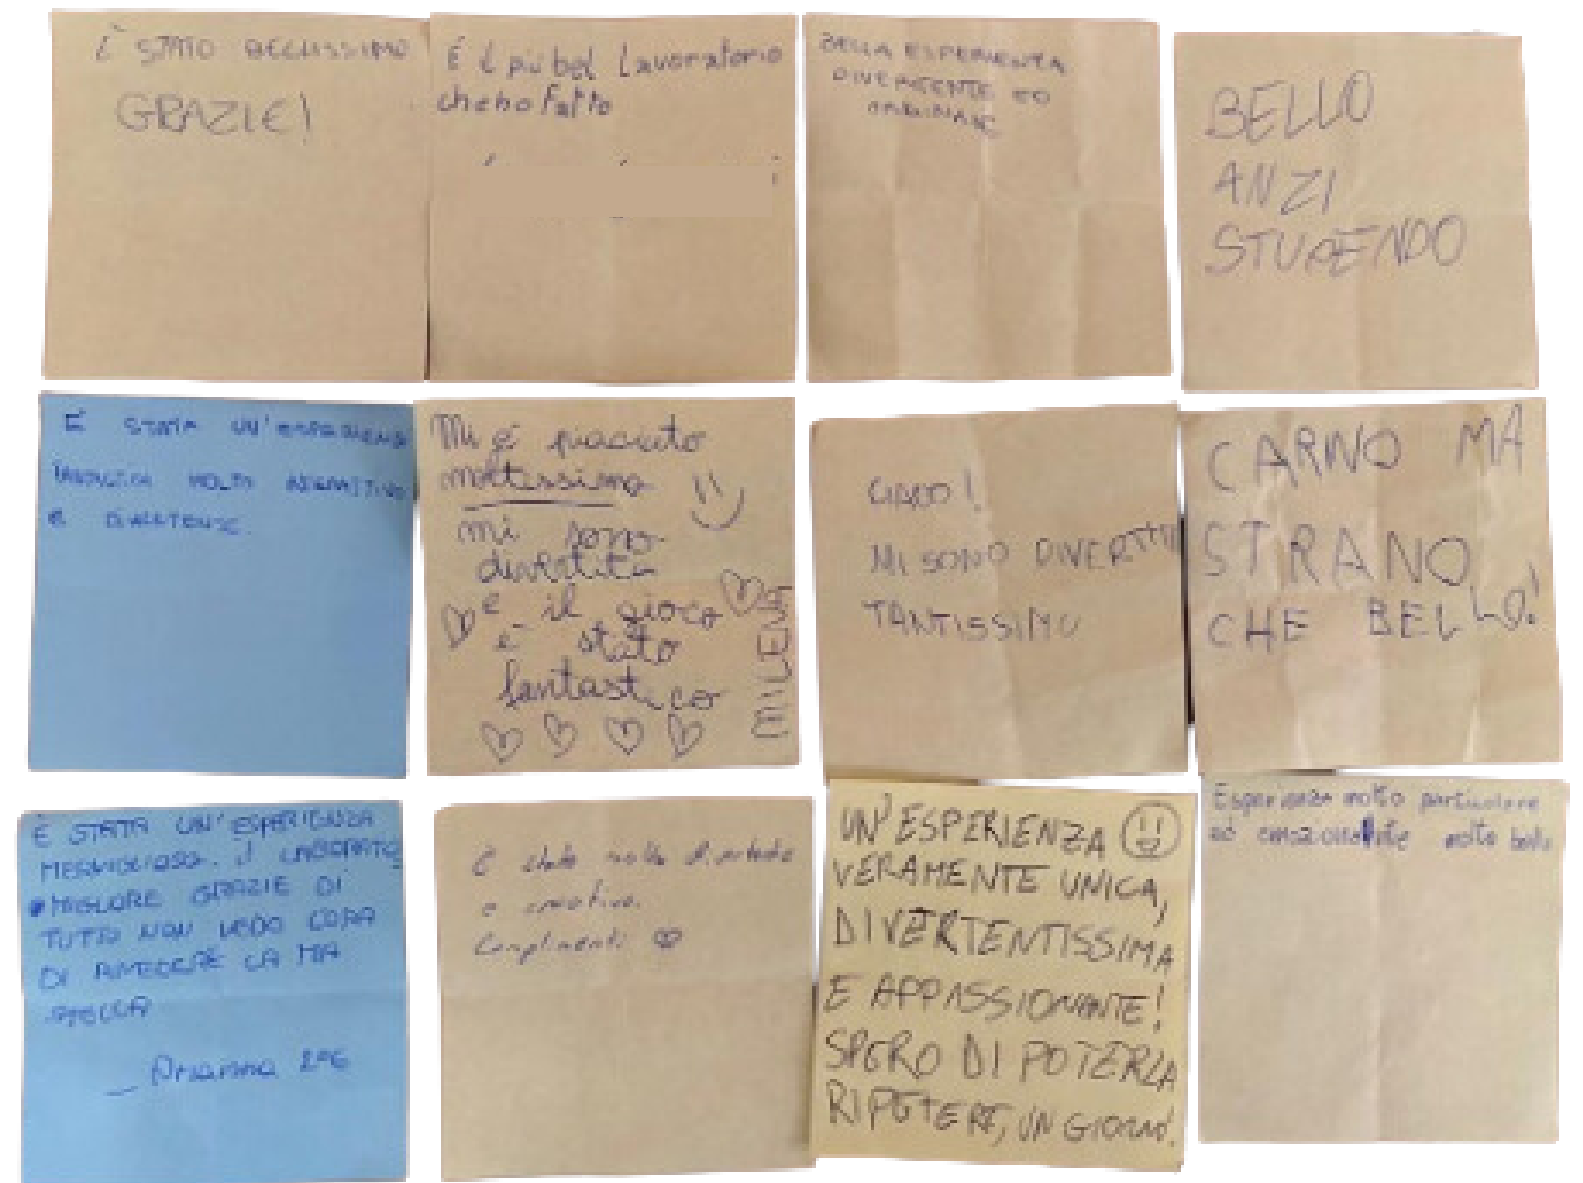 È STATO BELLISSIMO
GRAZIE!
È il più bel lavoratorio
che ho fatto
BELLA ESPERIENZA
DIVERTENTE ED
ORIGINALE
BELLO
ANZI
STUPENDO
È STATA UN'ESPERIENZA
MOLTO
E
Mi è piaciuto
moltissimo
mi sono
divertita
e il gioco
è stato
fantastico
MILENA
CIAO!
MI SONO DIVERTITO
TANTISSIMO
CARINO MA
STRANO
CHE BELLO!
È STATA UN'ESPERIENZA
MERAVIGLIOSA. IL LABORATO
MIGLIORE GRAZIE DI
TUTTO NON VEDO L'ORA
DI RIVEDERE LA MIA
Arianna
È stato molto divertente
e creativo.
Complimenti
UN'ESPERIENZA
VERAMENTE UNICA,
DIVERTENTISSIMA
E APPASSIONANTE!
SPERO DI POTERLA
RIPETERE, UN GIORNO!
Esperienza molto particolare
ed emozionante molto bella